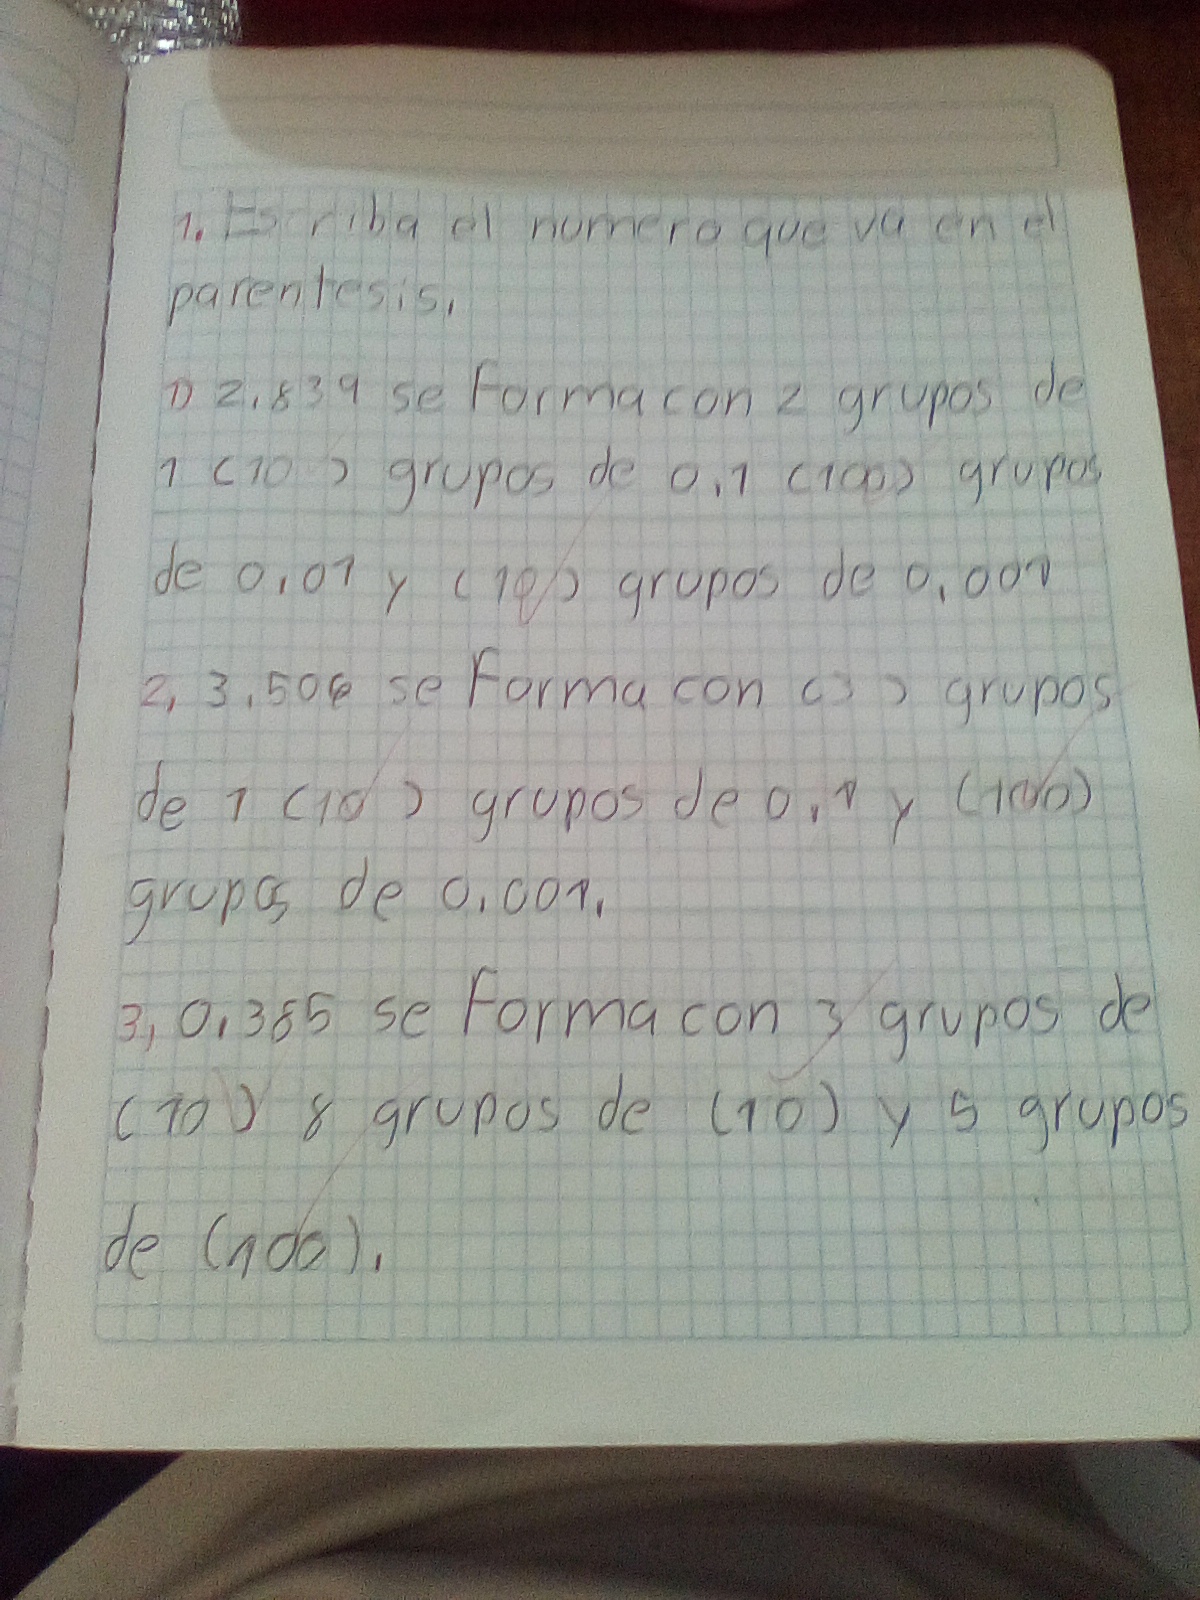 1. Escriba el numero que va en el
parentesis.
1) 2.839 se Forma con 2 grupos de
1 (10 ) grupos de 0.1 (100) grupos
de 0.01 y (10) grupos de 0.001
2, 3.506 se Forma con (3 ) grupos
de 1 (10 ) grupos de 0.1 y (100)
grupos de 0.001.
3, 0.385 se Forma con 3 grupos de
(10) 8 grupos de (10) y 5 grupos
de (100).